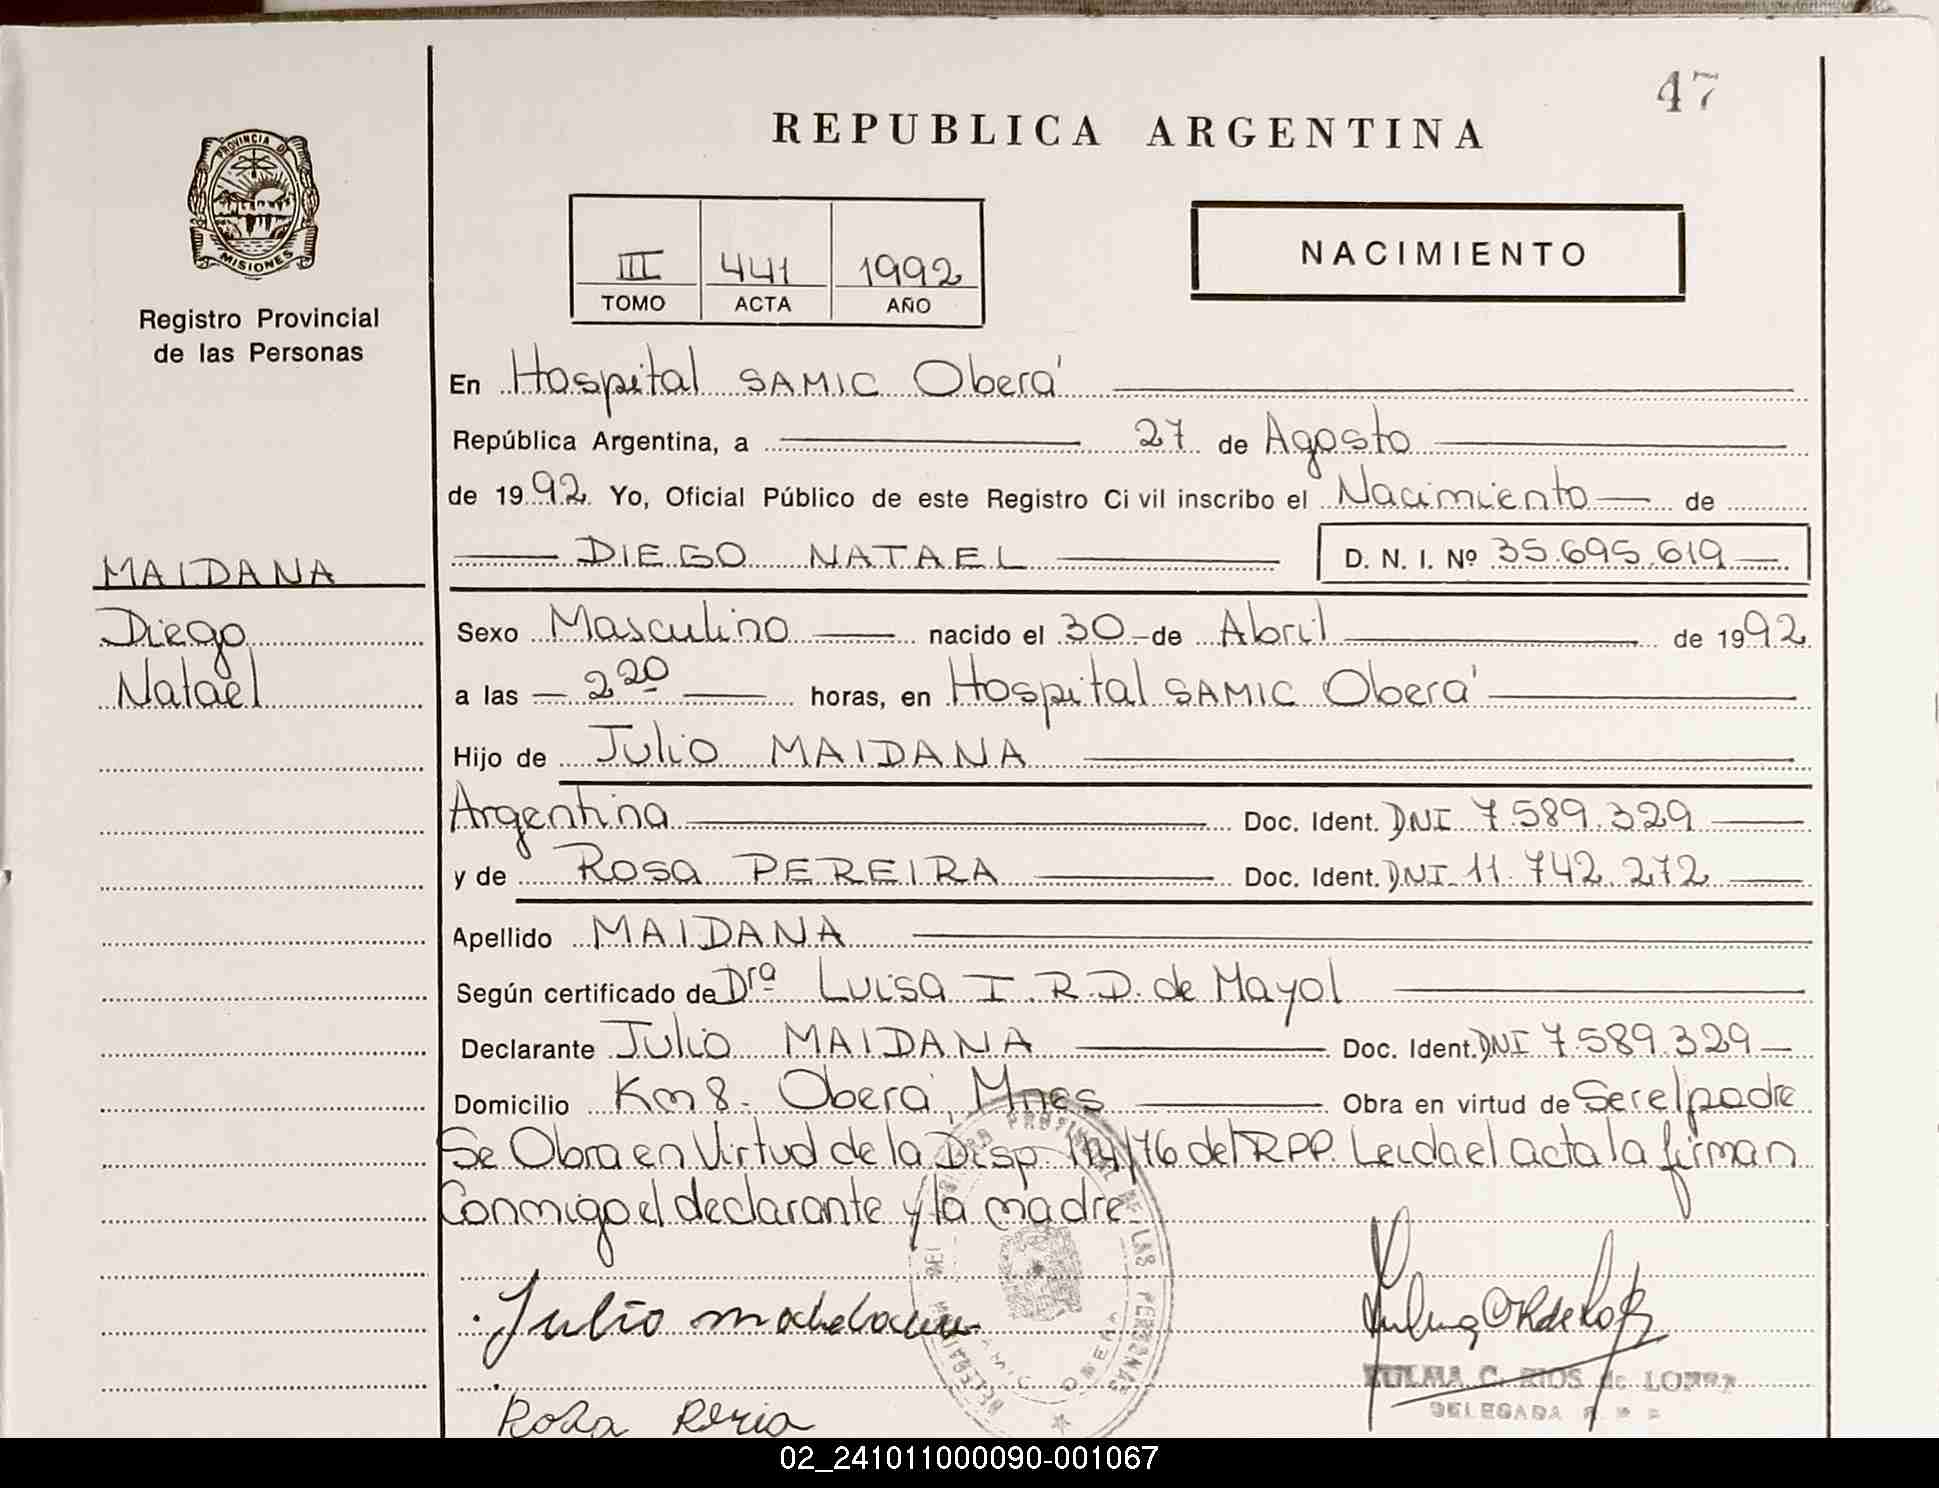 47
REPUBLICA ARGENTINA
PROVINCIA DE
MISIONES
III 441 1992
TOMO ACTA AÑO
NACIMIENTO
Registro Provincial
de las Personas
En Hospital SAMIC Oberá
República Argentina, a 27 de Agosto
de 1992. Yo, Oficial Público de este Registro Civil inscribo el Nacimiento de
DIEGO NATAEL D. N. I. Nº 35.695.619
MAIDANA
Diego
Natael
Sexo Masculino nacido el 30 de Abril de 1992
a las 2 20 horas, en Hospital SAMIC Oberá
Hijo de Julio MAIDANA
Argentina Doc. Ident. DNI 7.589.329
y de Rosa PEREIRA Doc. Ident. DNI 11.742.272
Apellido MAIDANA
Según certificado de Drª Luisa I. R.D. de Mayol
Declarante Julio MAIDANA Doc. Ident. DNI 7.589.329
Domicilio Km 8. Oberá, Mnes Obra en virtud de Ser el padre
Se Obra en Virtud de la Disp. 14/76 del RPP. Leida el acta la firman
Conmigo el declarante y la madre.
Julio
Rosa
C. RIOS de LOPEZ
DELEGADA
02_241011000090-001067